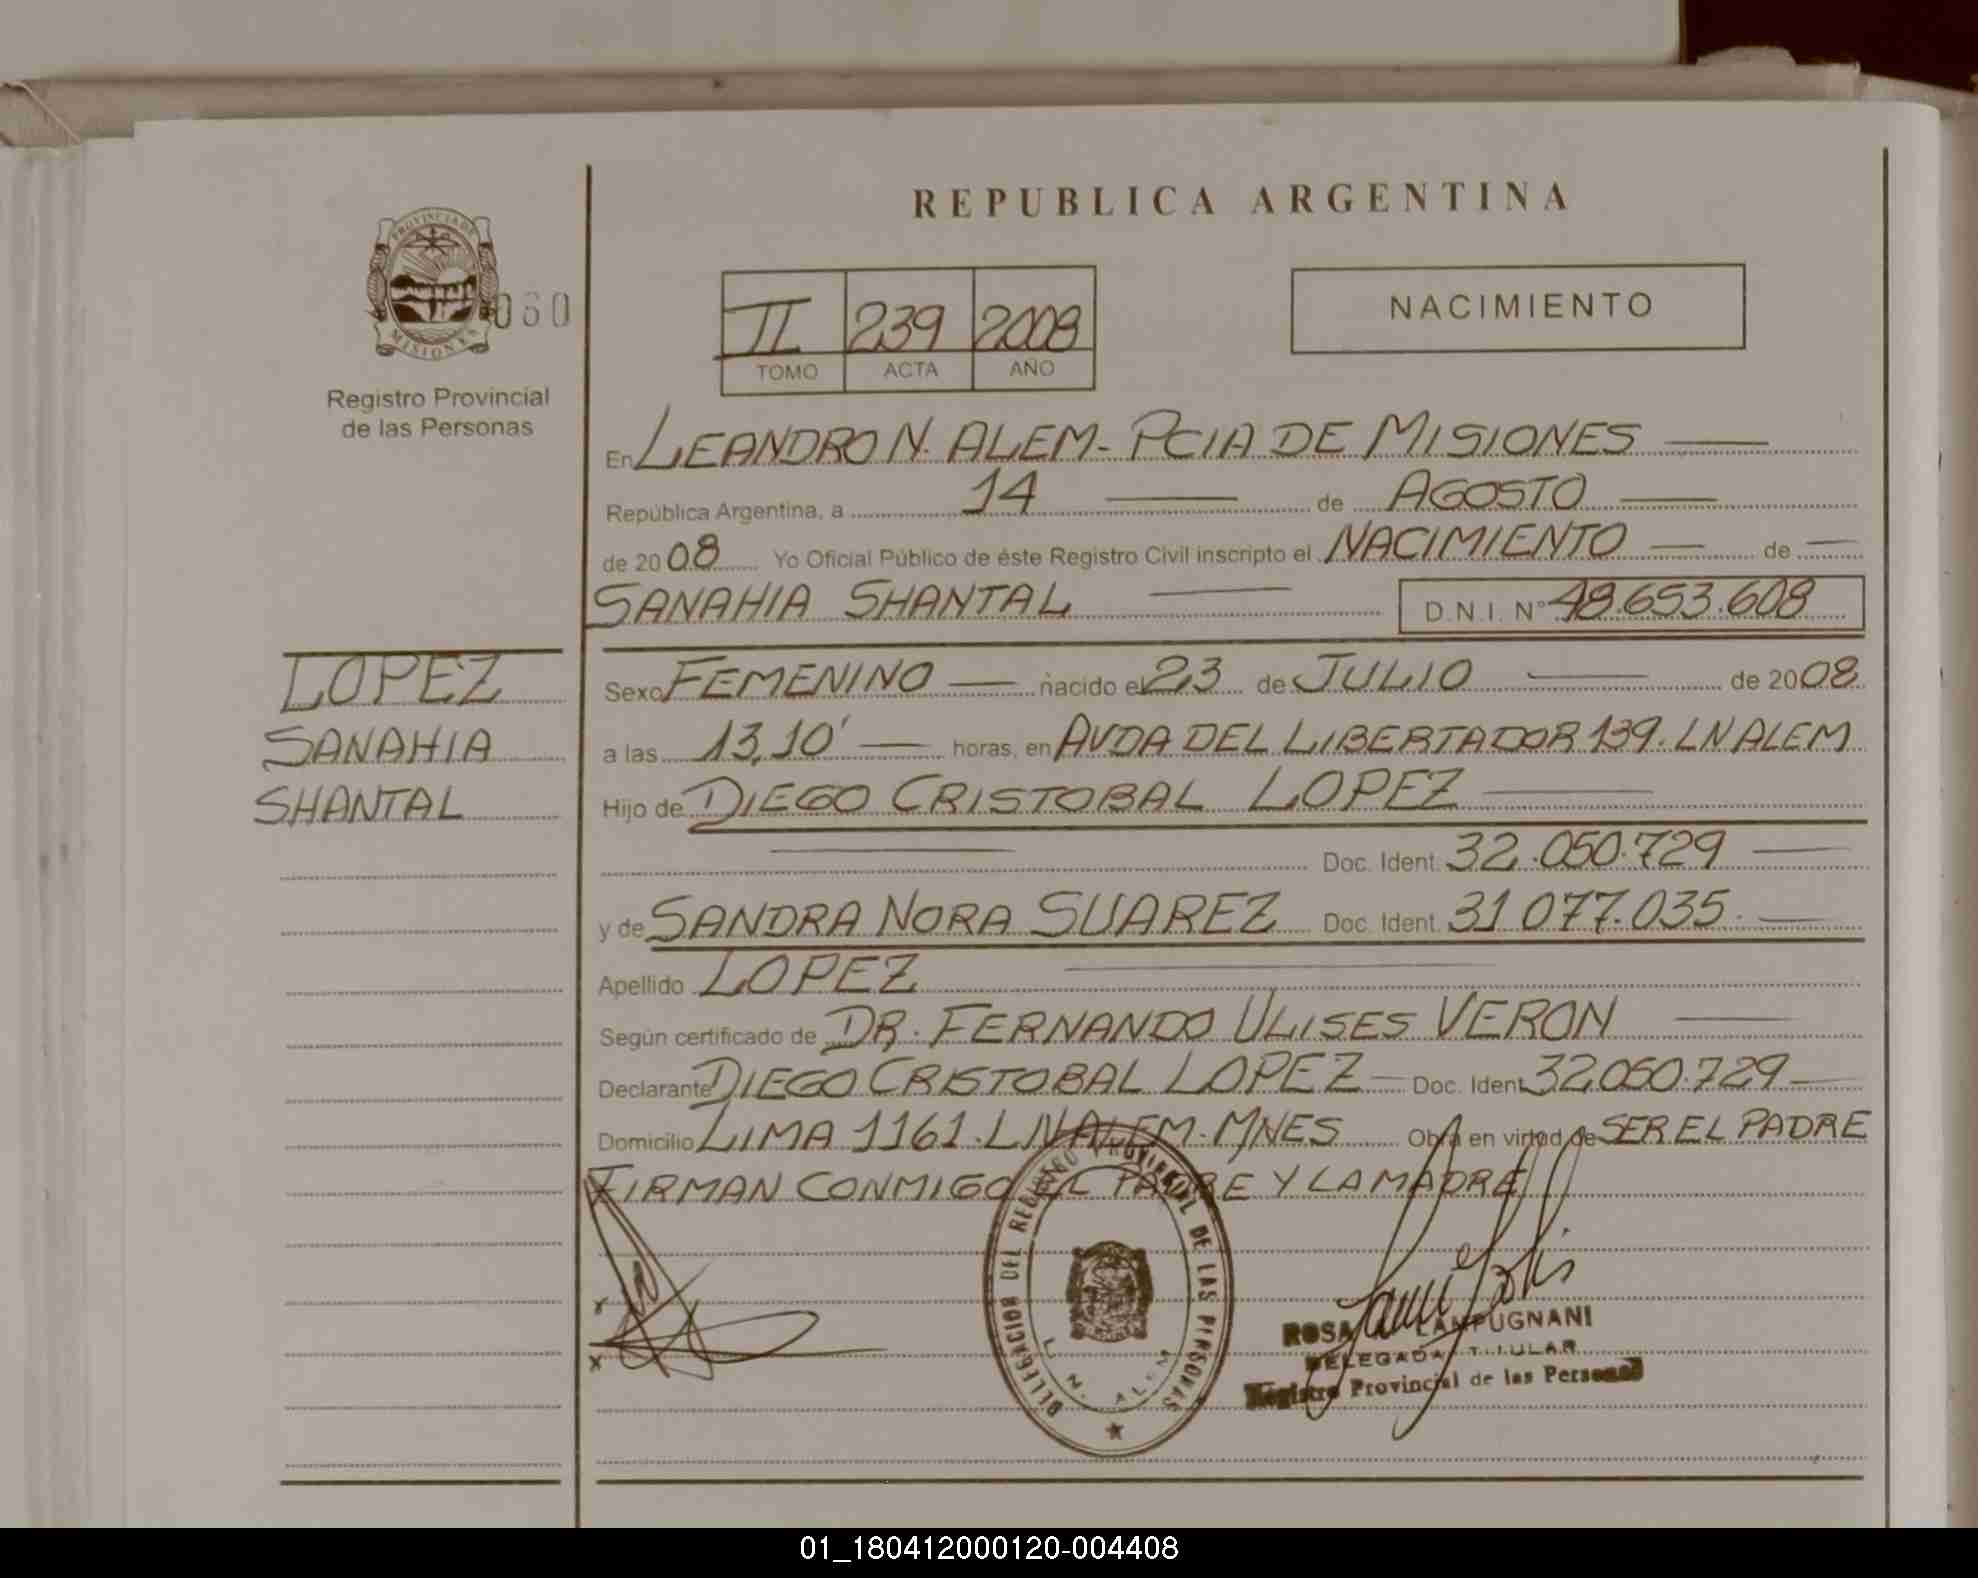 REPUBLICA ARGENTINA
PROVINCIA DE
MISIONES
060
Registro Provincial
de las Personas
II 239 2008
TOMO ACTA AÑO
NACIMIENTO
En LEANDRO N. ALEM - PCIA DE MISIONES
República Argentina, a 14 de AGOSTO
de 2008 Yo Oficial Público de éste Registro Civil inscripto el NACIMIENTO de
SANAHIA SHANTAL D.N.I. Nº 48.653.608
LOPEZ
SANAHIA
SHANTAL
Sexo FEMENINO nacido el 23 de JULIO de 2008
a las 13,10' horas, en AVDA DEL LIBERTADOR 139. LN ALEM
Hijo de DIEGO CRISTOBAL LOPEZ
Doc. Ident. 32.050.729
y de SANDRA NORA SUAREZ Doc. Ident. 31.077.035.
Apellido LOPEZ
Según certificado de DR. FERNANDO ULISES VERON
Declarante DIEGO CRISTOBAL LOPEZ Doc. Ident. 32.050.729
Domicilio LIMA 1161. LN ALEM - MNES Obra en virtud de SER EL PADRE
FIRMAN CONMIGO EL PADRE Y LA MADRE
DELEGACION DEL REGISTRO PROVINCIAL DE LAS PERSONAS
L. N. ALEM
ROSA LAMPUGNANI
DELEGADA TITULAR
Registro Provincial de las Personas
01_180412000120-004408